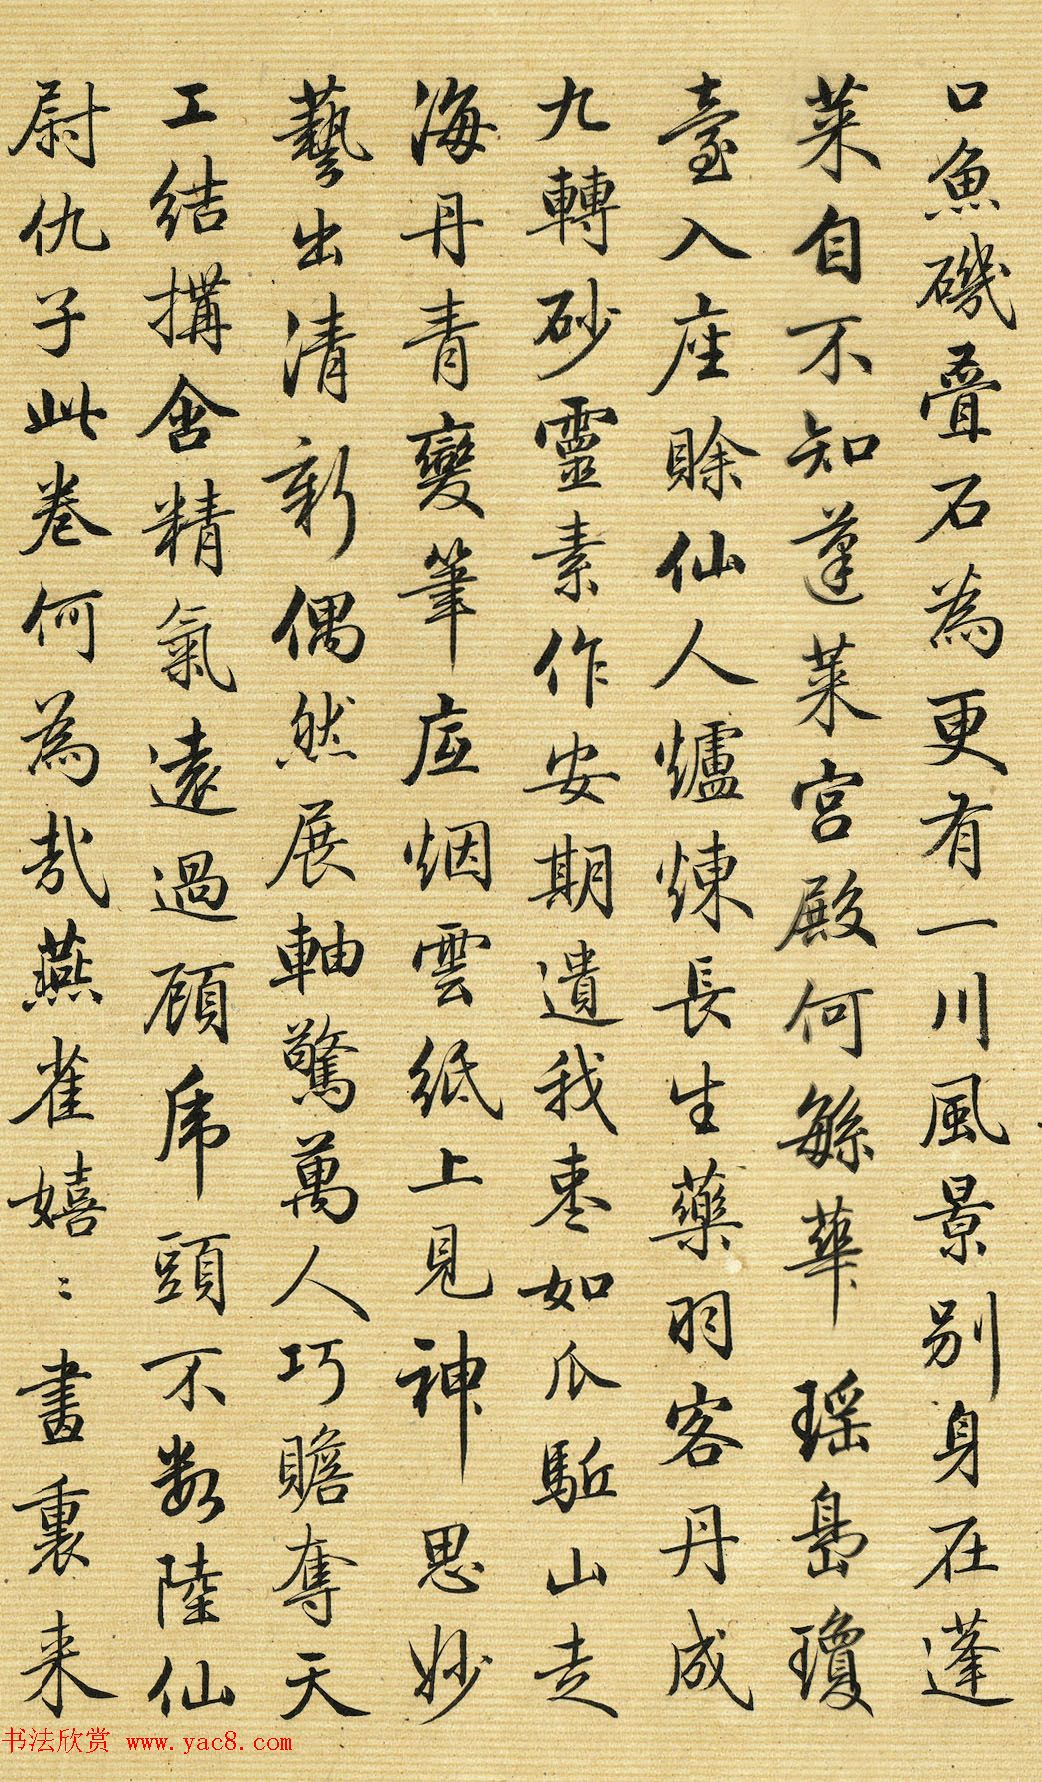 口魚磯疊石為更有一川風景別身在蓬
萊自不知蓬萊宮殿何繁華瑤島瓊
臺入座賒仙人爐煉長生藥羽客丹成
九轉砂靈素作安期遺我棗如瓜駈山走
海丹青變筆底烟雲紙上見神思妙
藝出清新偶然展軸驚萬人巧贍奪天
工結搆含精氣遠過顧虎頭不數陸仙
尉仇子此卷何為哉燕雀嬉〻畫裏来
书法欣赏 www.yac8.com